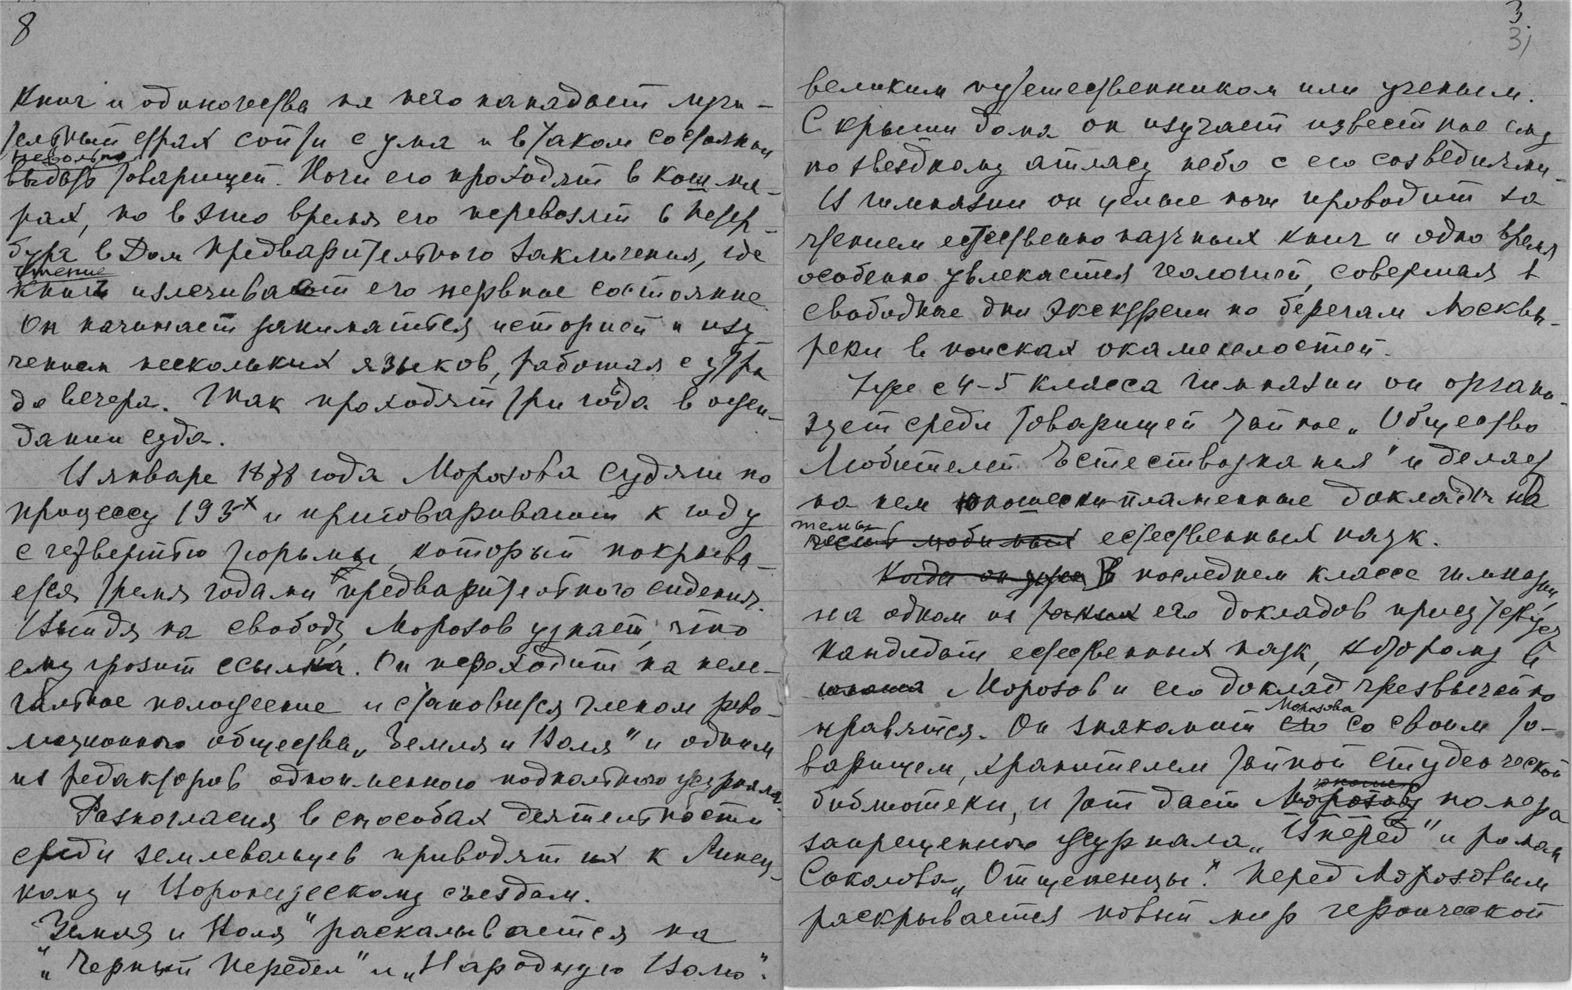 8
книг и одиночества на него нападает мучи-
тельный страх сойти с ума и в таком состоянии
невольно
выдать товарищей. Ночи его проходят в кошма-
рах, но в это время его перевозят в Петер-
бург в Дом Предварительного Заключения, где
чтение
книг излечивает его нервное состояние
Он начинает заниматься историей и изу
чением нескольких языков, работая с утра
до вечера. Так проходят три года в ожи-
дании суда.
В январе 1878 года Морозова судят по
процессу 193х и приговаривают к году
с четвертью тюрьмы, который покрыва-
ется тремя годами предварительного сидения.
Выйдя на свободу, Морозов узнает, что
ему грозит ссылка. Он переходит на неле-
гальное положение и становится членом рево-
люционного общества „Земля и Воля" и одним
из редакторов одноименного подпольного журнала.
Разногласия в способах деятельности
среди землевольцев приводят их к Липец-
кому и Воронежскому съездам.
„Земля и Воля" раскалывается на
„Черный Передел" и „Народную Волю".
3.
3)
великим путешественником или ученым.
С крыши дома он изучает известное ему
по звездному атласу небо с его созвездиями.
В гимназии он целые ночи проводит за
чтением естественно научных книг и одно время
особенно увлекается геологией, совершая в
свободные дни экскурсии по берегам Москвы-
реки в поисках окаменелостей.
Уже с 4-5 класса гимназии он органи-
зует среди товарищей тайное „Общество
Любителей Естествознания" и делает
на нем юношески пламенные доклады на
темы
любимых естественных наук.
Когда он уже В последнем классе гимназии,
на одном из таких его докладов присутствует
кандидат естественных наук, которому и
юноша Морозов и его доклад чрезвычайно
Морозова
нравятся. Он знакомит его со своим то-
варищем, хранителем тайной студенческой
юноше
библиотеки, и тот дает Морозову номера
запрещенного журнала „Вперед" и роман
Соколова „Отщепенцы". Перед Морозовым
раскрывается новый мир героической